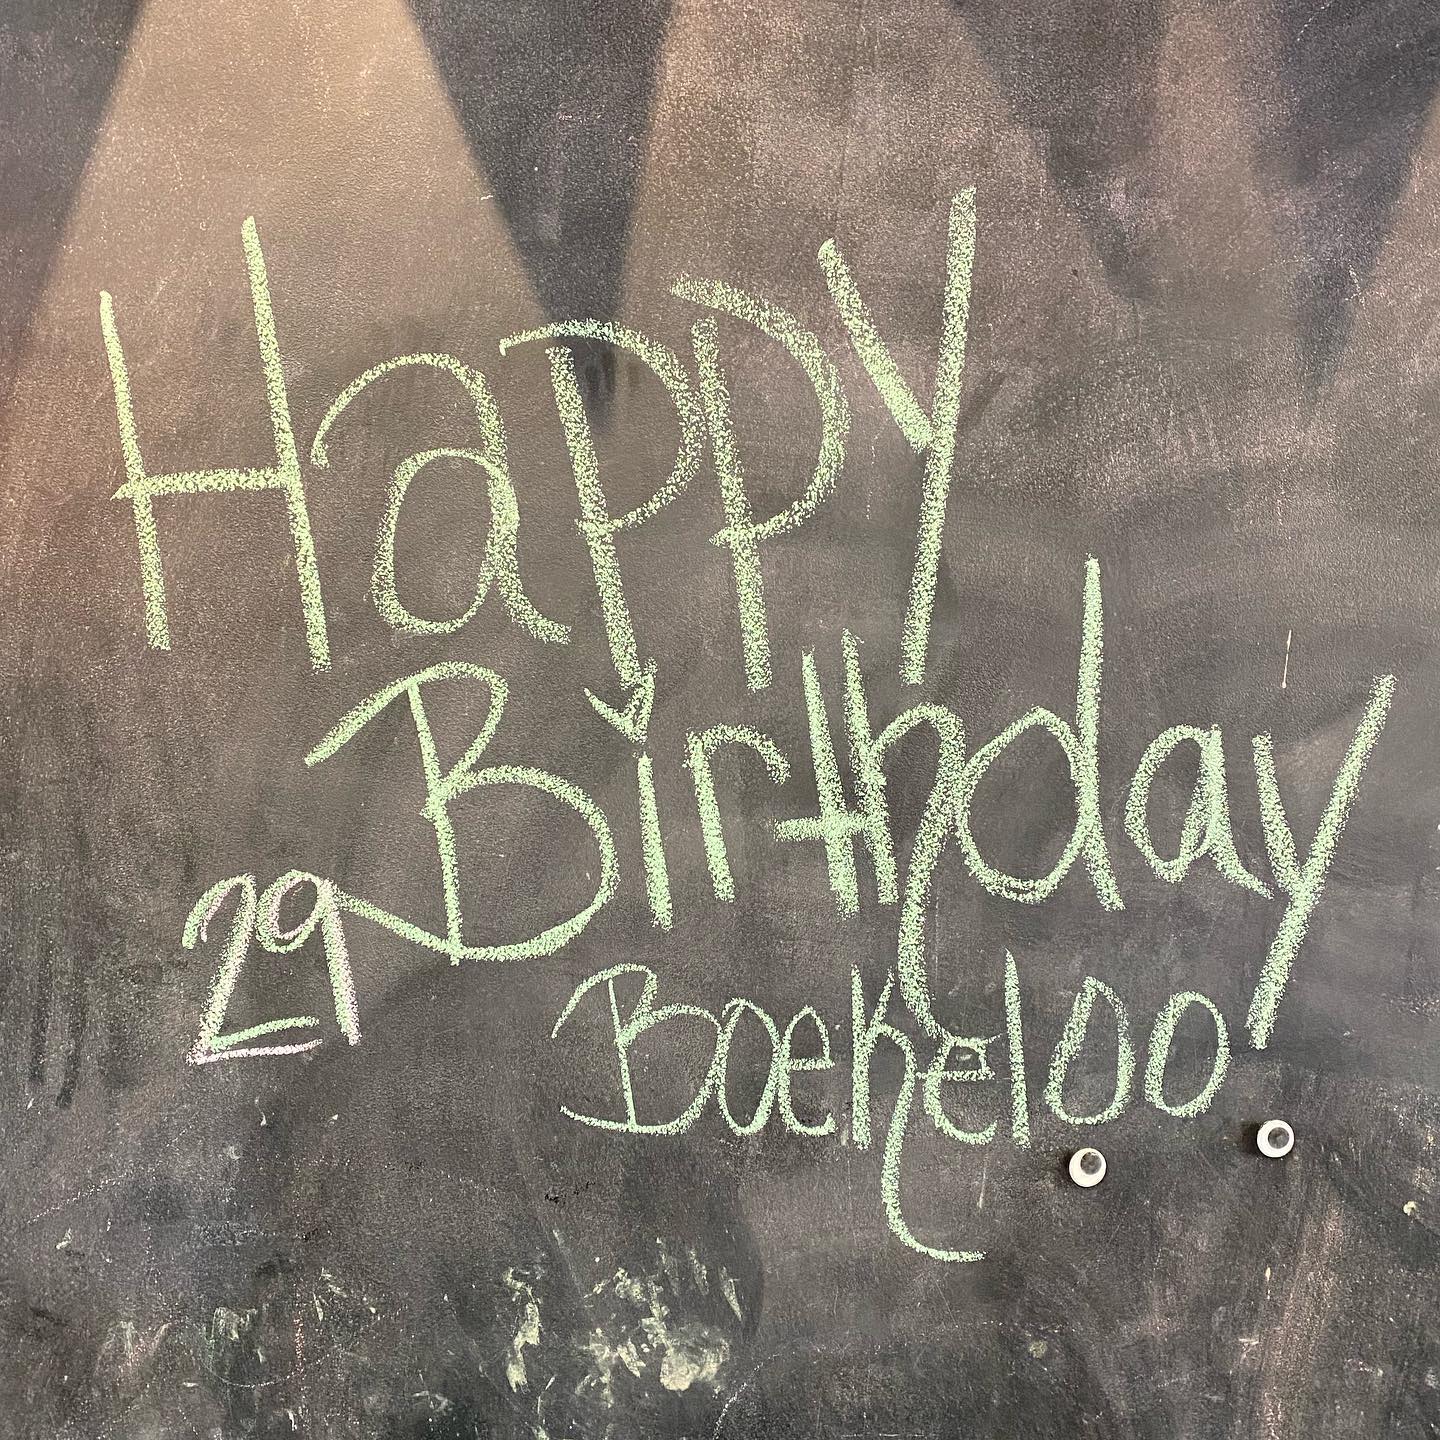 Happy
Birthday
29
Boekeloo